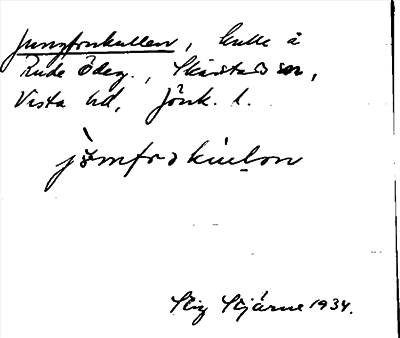 Jungfrukullen, kulle å
Rude Ödeg., Skärstads sn,
Vista hd, Jönk. l.
Stig Stjärne 1934.